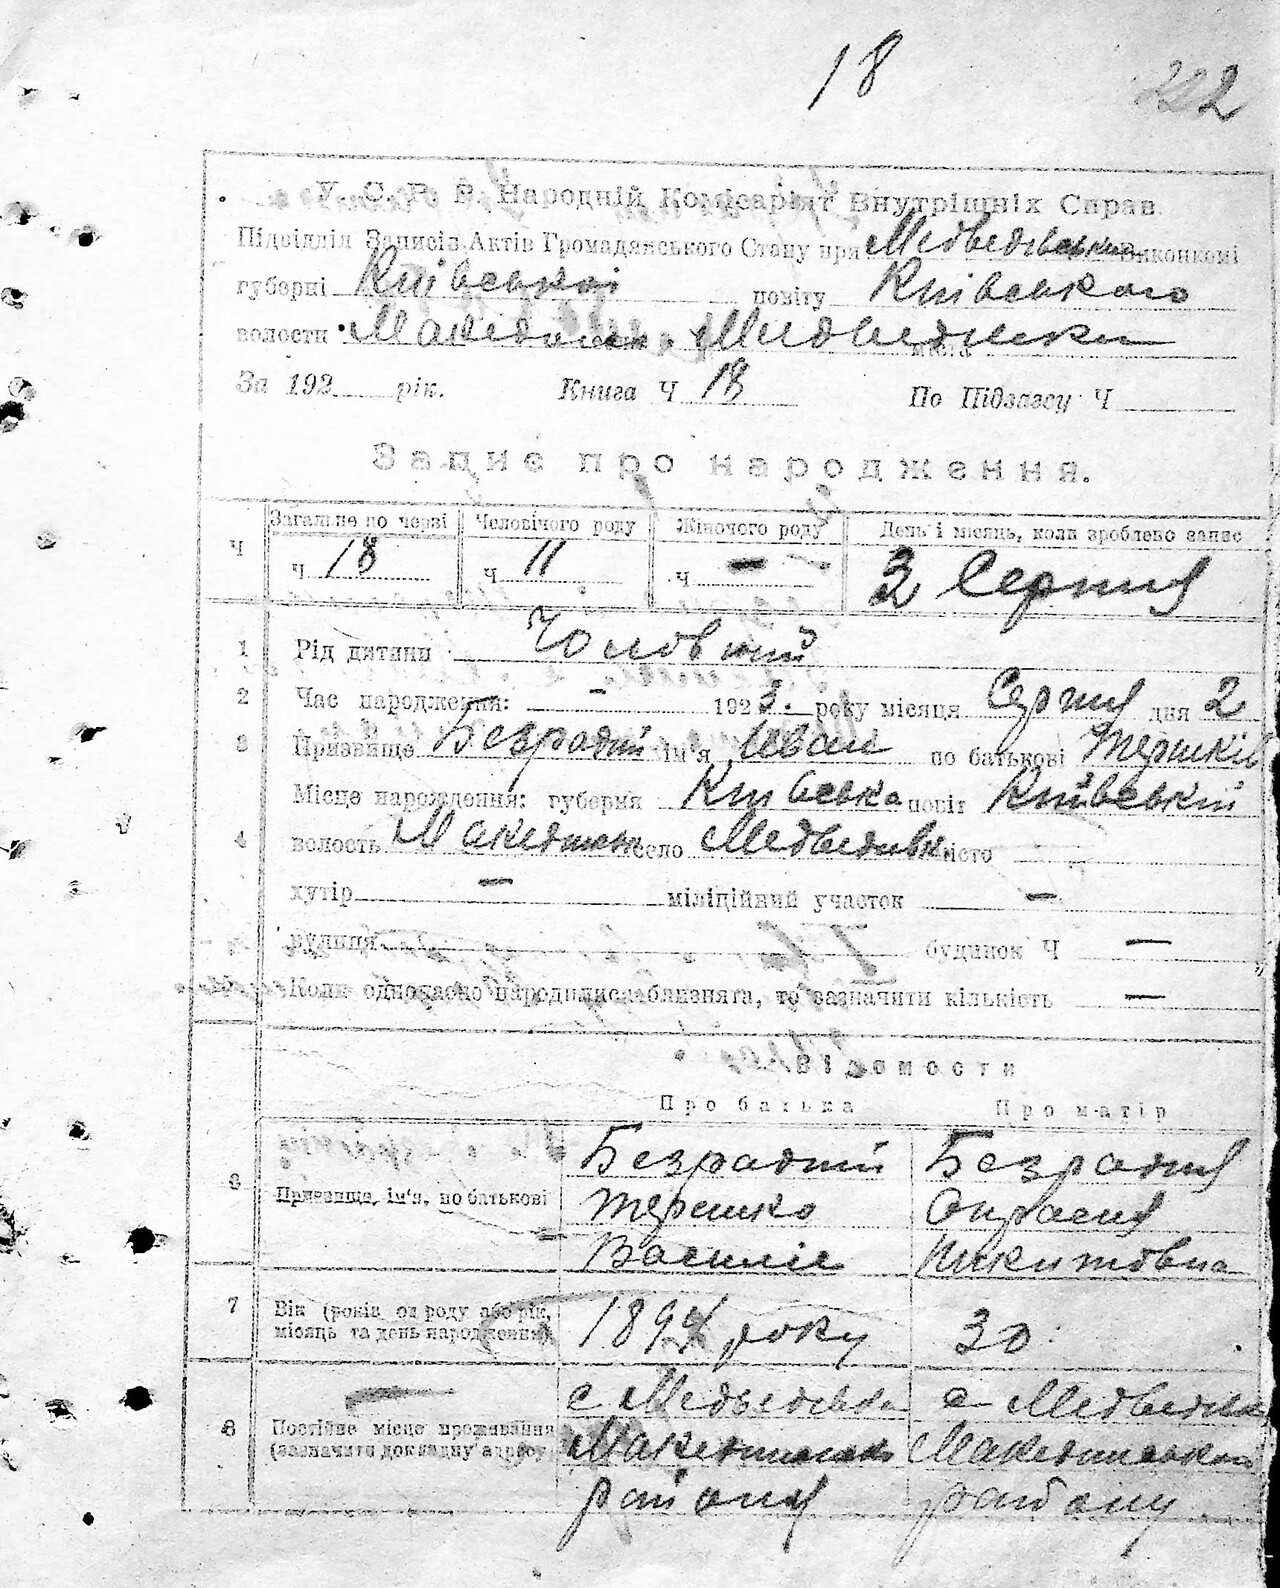 18 222
У. С. Р. Р. Народній Комісаріят Внутрішніх Справ
Підвідділ Записів Актів Громадянського Стану при Медведівським виконкомі
губерні Київської повіту Київського
волости
За 192 рік. Книга Ч 18 По Підзагсу Ч
Запис про народження.
Ч Загальне по черзі Человічого роду Жіночого роду День і місяць, коли зроблено запис
ч 18 ч 11 ч — 3 Серпня
1 Рід дитини Чоловічий
2 Час народження: - 1923. року місяця Серпня дня 2
3 Призвище Безрадній ім'я Иван по батькові Терешків
Місце нарождення: губерня Київська повіт Київський
4 волость село Медведівка місто
хутір — міліційний участок —
вулиця будинок Ч —
Коли одночасно народилися близнята, то зазначити кількість —
Відомости
Про батька Про матір
Призвище, ім'я, по батькові
Безрадній Безрадня
Терешко Опрасия
Василіє Никитовна
7 Вік (років од роду або рік, місяць та день народження) 1894 року 30
8 Постійне місце проживання (зазначити докладну адресу)
с Медведівка с Медведівка
району